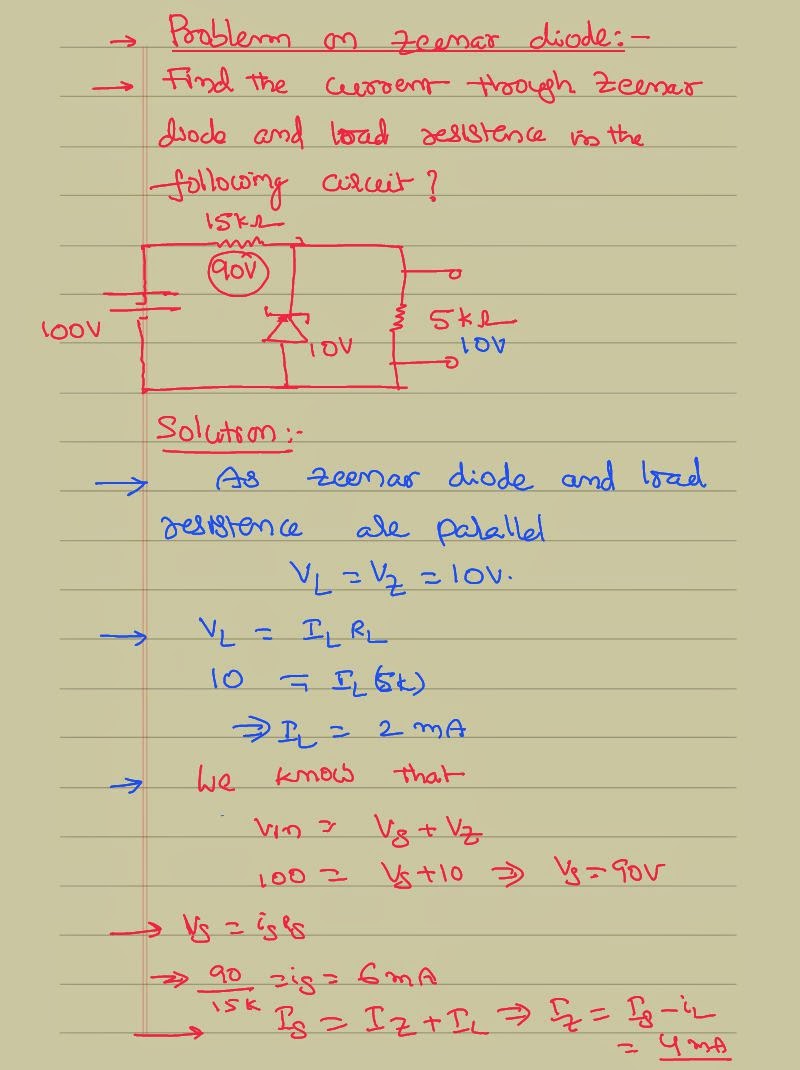 → Problem on zeenar diode:-
→ Find the current through zeenar
diode and load resistence in the
following circuit?
15kΩ
90V
100V
10V
5kΩ
10V
Solution:-
→ As zeenar diode and load
resistence are parallel
V_L = V_Z = 10V.
→ V_L = I_L R_L
10 = I_L (5k)
⇒ I_L = 2 mA
→ We know that
Vin = Vs + V_Z
100 = Vs+10 ⇒ Vs = 90V
→ Vs = is Rs
⇒ 90/15k = is = 6mA
→ Is = I_Z + I_L ⇒ I_Z = Is - i_L
= 4 mA